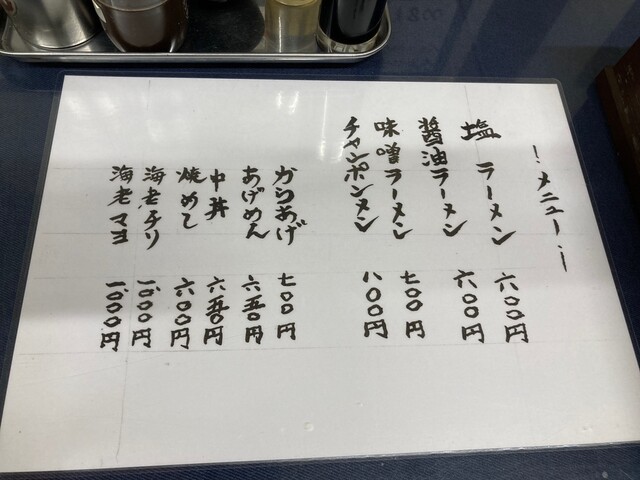 ！メニュー！
塩ラーメン 六〇〇円
醤油ラーメン 六〇〇円
味噌ラーメン 七〇〇円
チャンポンメン 八〇〇円
からあげ 七〇〇円
あげめん 六五〇円
中丼 六五〇円
焼めし 六〇〇円
海老チリ 一、〇〇〇円
海老マヨ 一、〇〇〇円